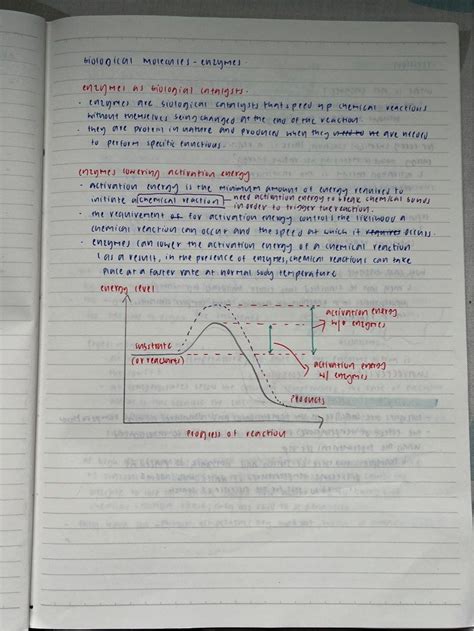 biological molecules - enzymes
enzymes as biological catalysts.
· enzymes are biological catalysts that speed up chemical reactions
without themselves being changed at the end of the reaction.
· they are protein in nature and produced when they are needed
to perform specific functions.
enzymes lowering activation energy
· activation energy is the minimum amount of energy required to
initiate a chemical reaction
need activation energy to break chemical bonds
in order to trigger the reaction.
· the requirement for activation energy controls the likelihood a
chemical reaction can occur and the speed at which it occurs.
· enzymes can lower the activation energy of a chemical reaction
as a result, in the presence of enzymes, chemical reactions can take
place at a faster rate at normal body temperature.
energy level
activation energy
w/o enzymes
substrate
(or reactants)
activation energy
w/ enzymes
products
progress of reaction